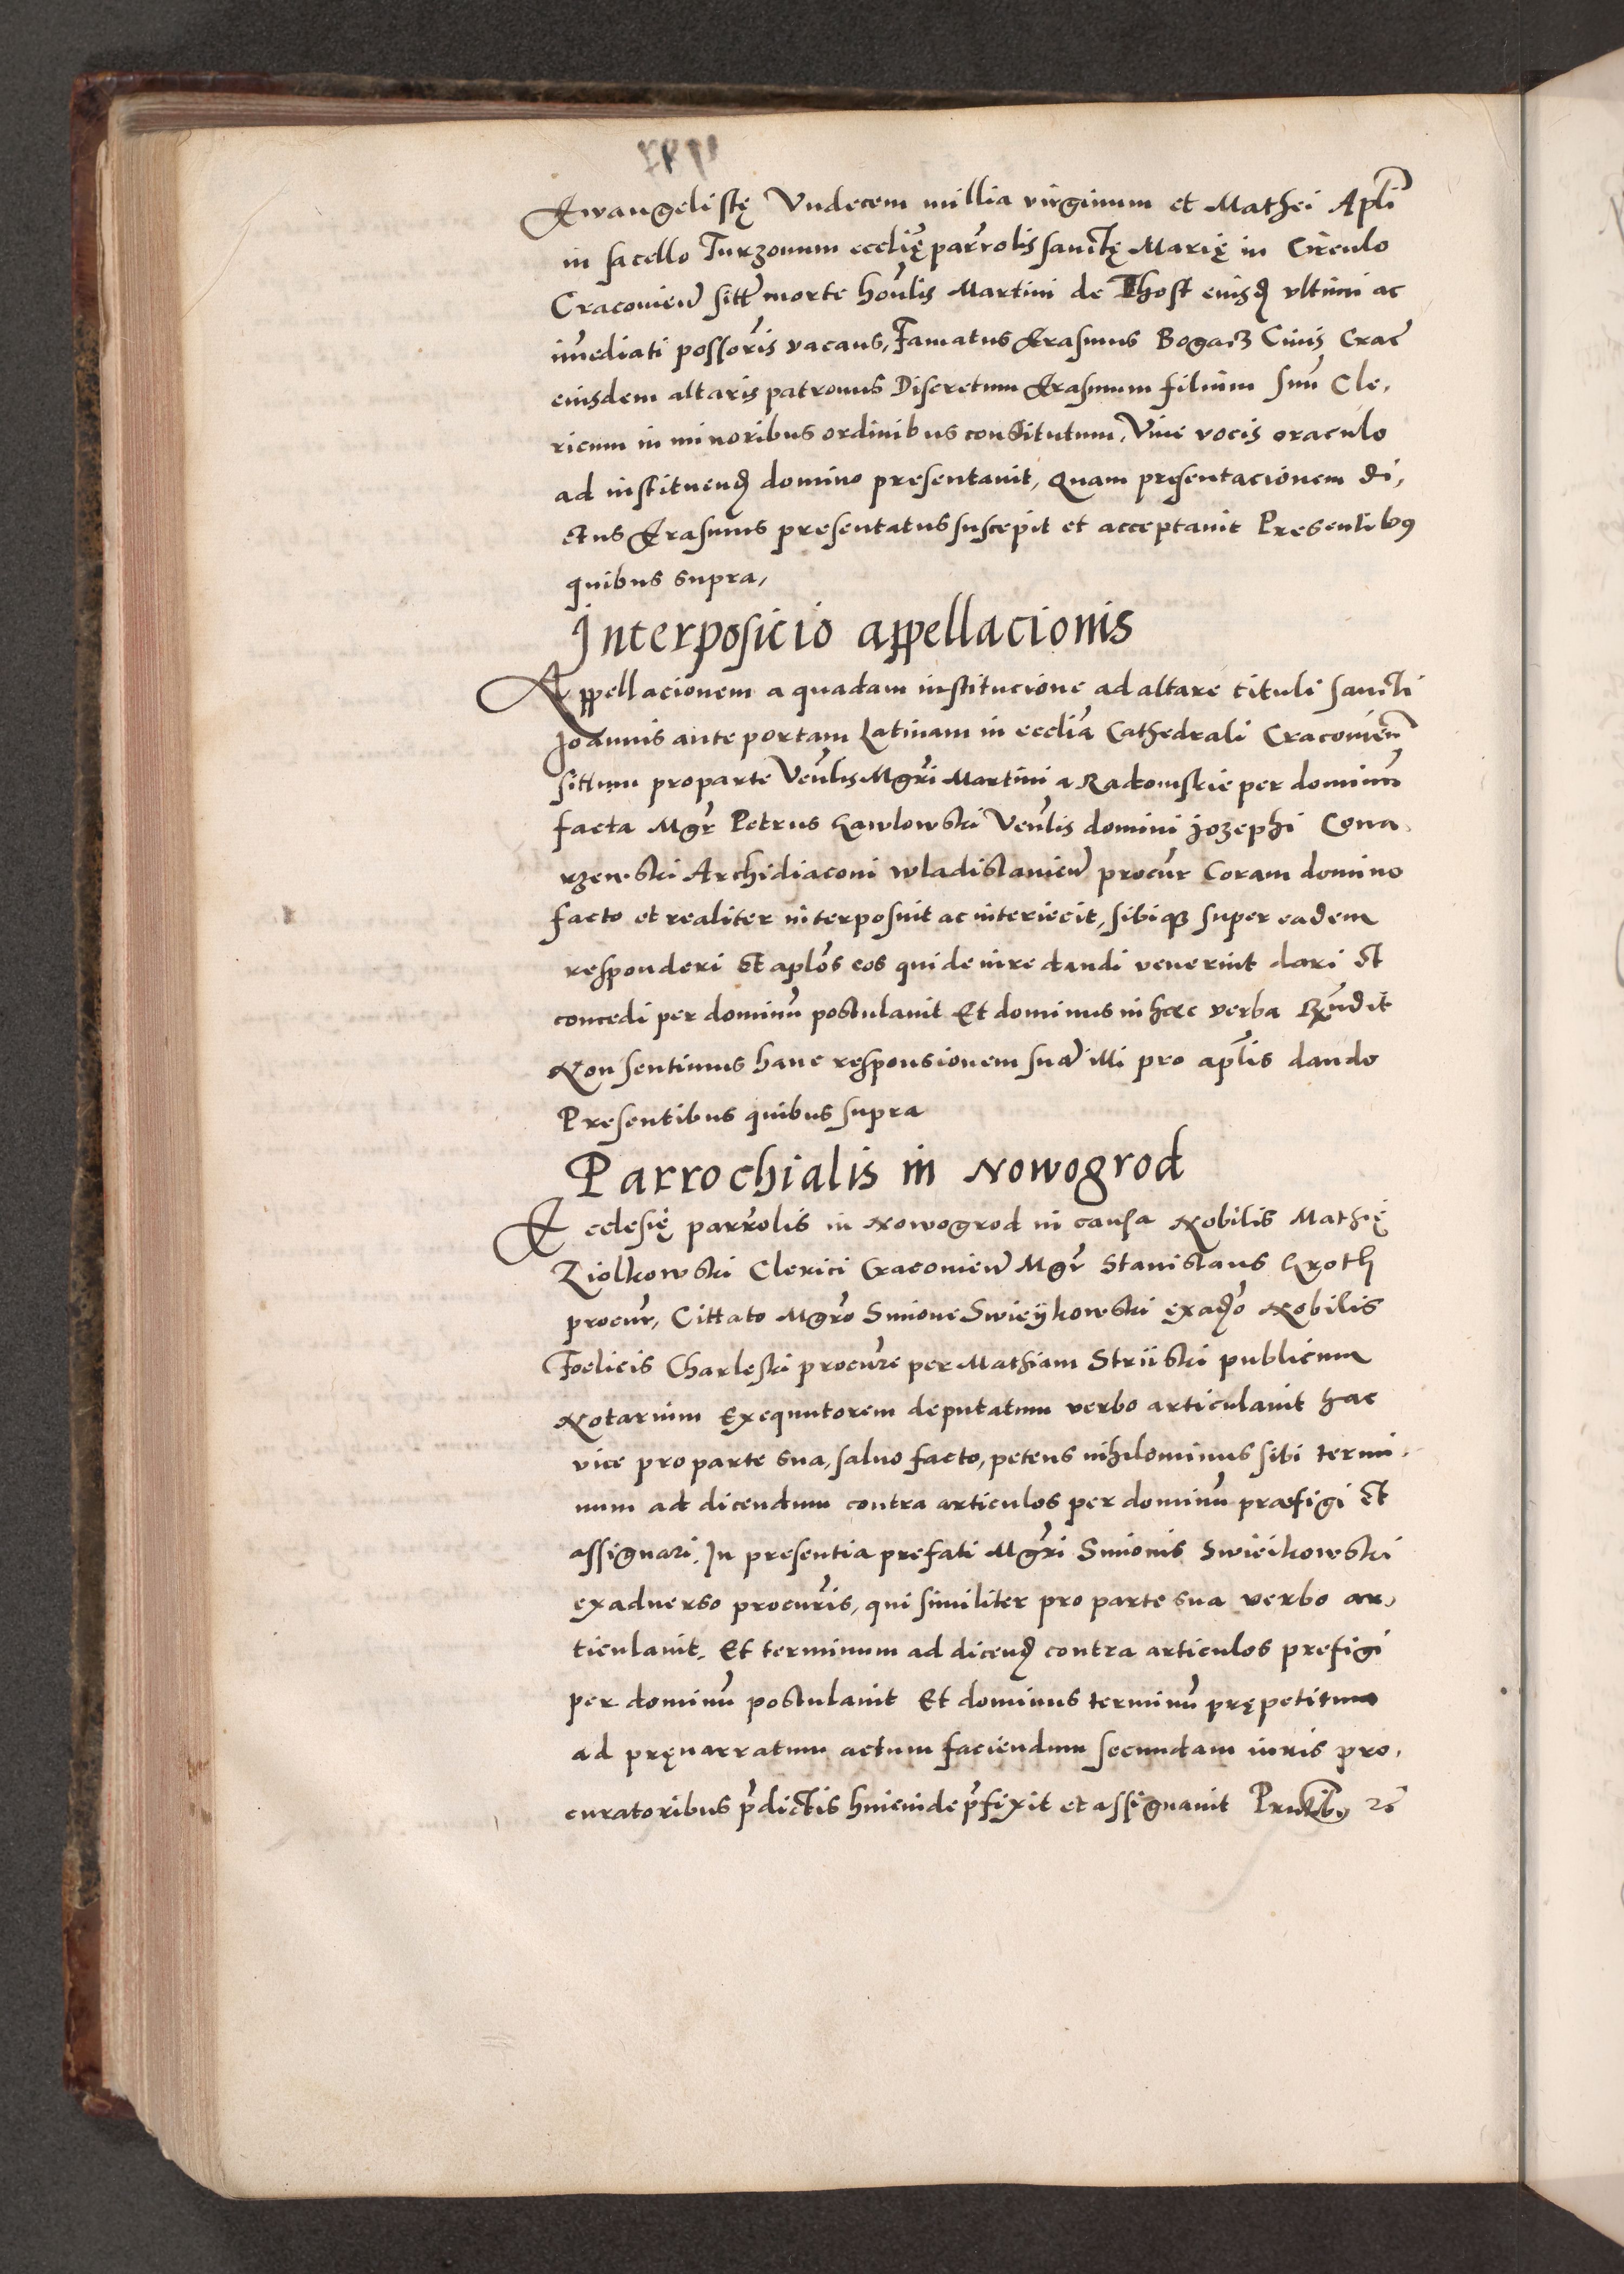 Ewangelistę Vndecem millia virginum et Mathei Apli
in sacello Turzonum ecclię parrolis sanctę Marię in Circulo
Cracovien sitt morte honlis Martini de Thost eiusd vltimi ac
immediati possoris vacans, Famatus Erasmus Bogacz Ciuis Crac
eiusdem altaris patronus Discretum Erasmum filium suu Cle,
ricum in minoribus ordinibus constitutum, Viue vocis oraculo
ad instituend domino presentauit, Quam presentacionem di,
ctus Erasmus presentatus suscepit et acceptauit Presentibus
quibus supra,
Interposicio appellacionis
Appellacionem a quadam institucione ad altare tituli sancti
Joannis ante portam Latinam in ecclia Cathedrali Cracovien
sittum pro parte Venlis Mgri Martini a Radomskie per dominum
facta Mgr Petrus Lawlowski Venlis domini Jozephi Cona,
rzewski Archidiaconi wladislavien procur Coram domino
facto et realiter interposuit ac interiecit, sibique super eadem
responderi et aplos eos qui de iure dandi venerint dari et
concedi per dominu postulauit Et dominus in haec verba Rxndit
Non sentimus hanc responsionem sua illi pro aplis dando
Presentibus quibus supra
Parrochialis in Nowogrod
Ecclesię parrolis in Nowogrod in causa Nobilis Mathię
Ziolkowski Clerici Cracovien Mgr Stanislaus Kroth
procur, Cittato Mgro Simone Swieykowski exado Nobilis
Foelicis Charleski procure per Mathiam Striiski publicum
Notarium Exequutorem deputatum verbo articulauit hac
vice pro parte sua, saluo facto, petens nihilominus sibi termi,
num ad dicendum contra articulos per dominu præfigi et
assignari, In presentia prefati Mgri Simonis Swieikowski
exaduerso procuris, qui similiter pro parte sua verbo ar,
ticulauit, Et terminum ad dicend contra articulos prefigi
per dominu postulauit Et dominus terminu prępetitum
ad pręnarratum actum faciendum secundam iuris pro,
curatoribus pdictis hincinde pfixit et assignauit Pntibus